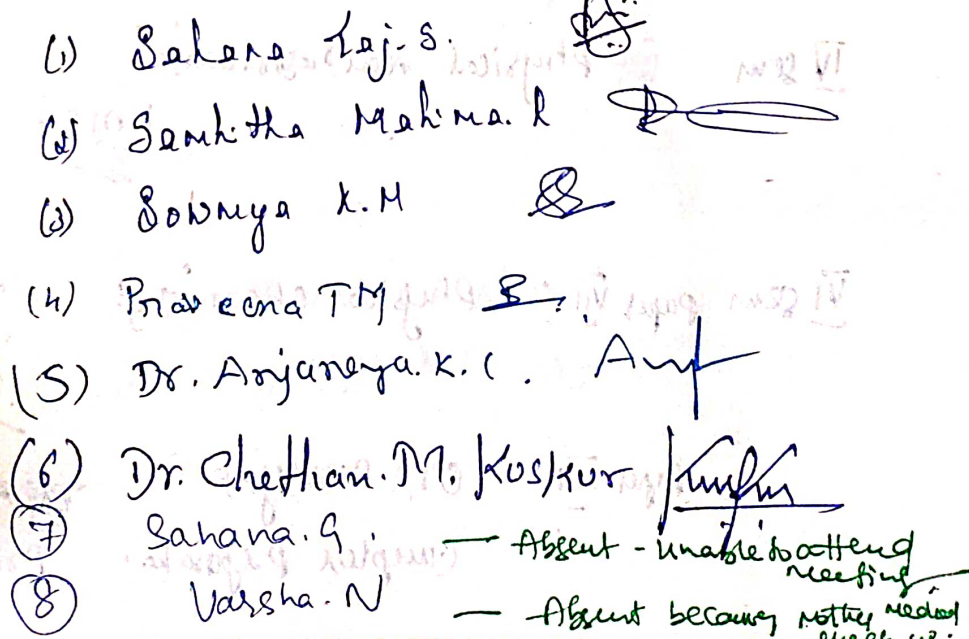 (1) Sahana Taj. S.
(2) Samhitha Mahima. R
(3) Sowmya K.M
(4) Praveena T M
(5) Dr. Anjaneya. K. C.
(6) Dr. Chethan. M. Koskur
(7) Sahana. G. — Absent - Unable to attend meeting
(8) Varsha. N — Absent because mother medical